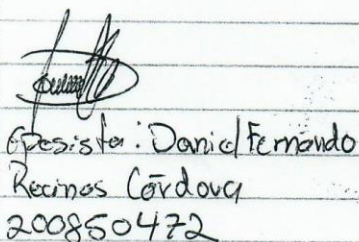 Epesista: Daniel Fernando
Recinos Córdova
200850472